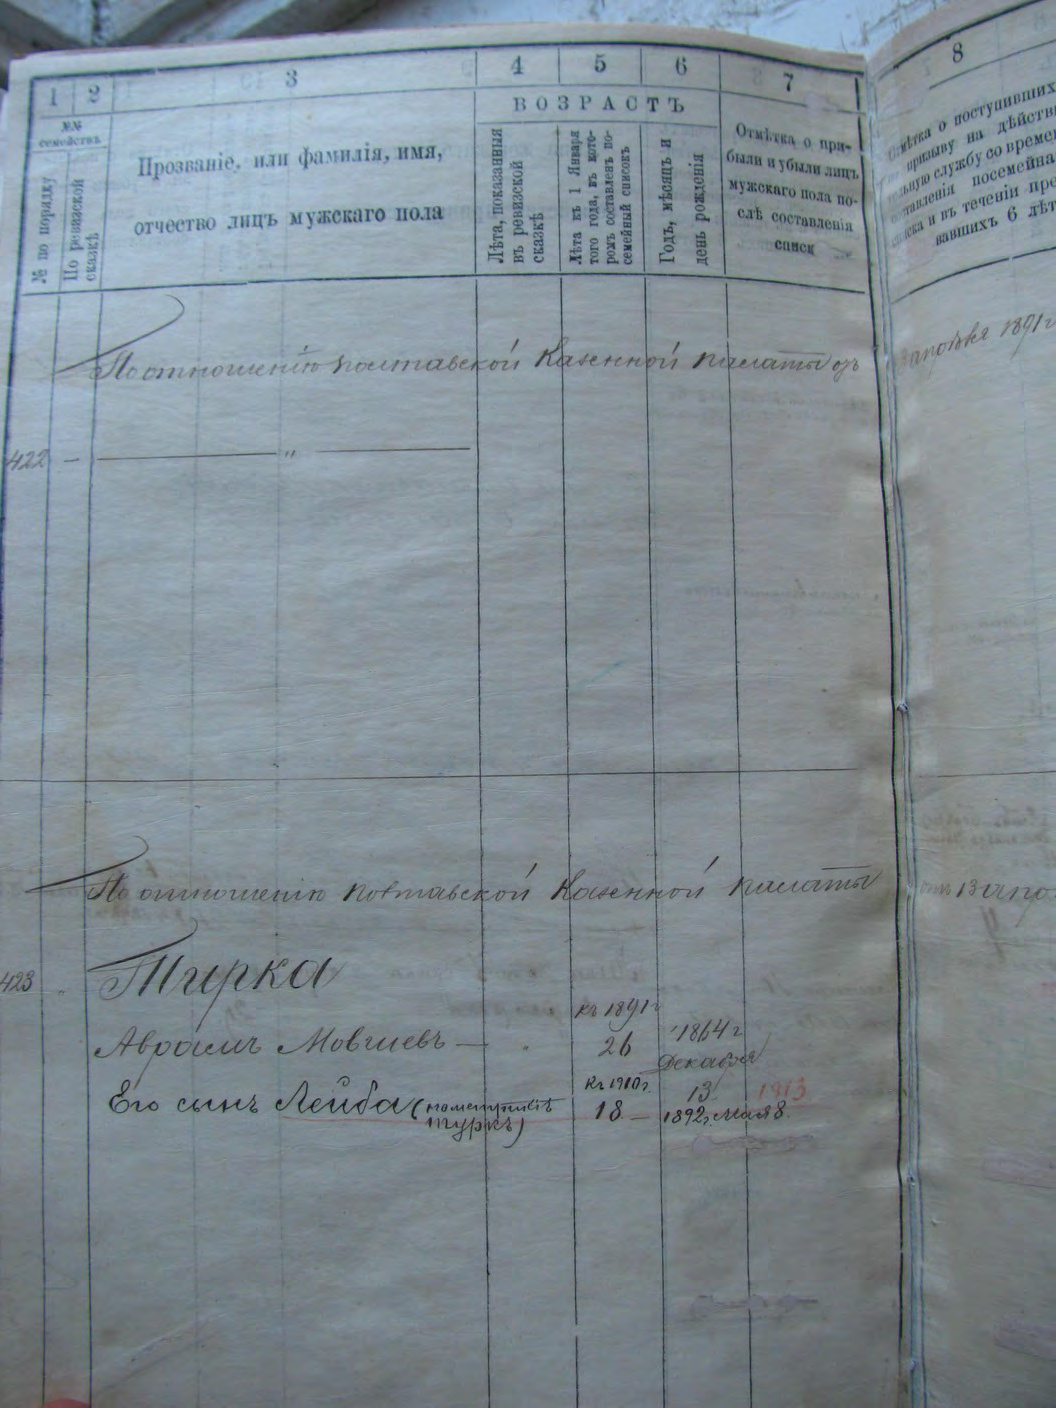 1 2 3 4 5 6 7 8
№№ семействъ
№ по порядку
По ревизской сказкѣ
Прозваніе, или фамилія, имя,
отчество лицъ мужскаго пола
ВОЗРАСТЪ
Лѣта, показанныя
въ ревизской
сказкѣ
Лѣта къ 1 Января
того года, въ кото-
ромъ составленъ по-
семейный списокъ
Годъ, мѣсяцъ и
день рожденія
Отмѣтка о при-
были и убыли лицъ
мужскаго пола по-
слѣ составленія
списк
Отмѣтка о поступившихъ
призыву на дѣйстви
тельную службу со времен
ставленія посемейна
списка и въ теченіи пре
вавшихъ 6 лѣт
По отношенію полтавской Казенной палаты отъ
3 апрѣля 1891 г
422 — — „ —
По отношенію полтавской Казенной палаты
отъ 13 апр
423 „ Тирка
къ 1891 г
Аврамъ Мовшевъ — 26 1864 г
Декабря
13
къ 1910 г. 1913
Его сынъ Лейба (по метрикѣ 18 — 1892 г. Мая 8.
Туркъ)